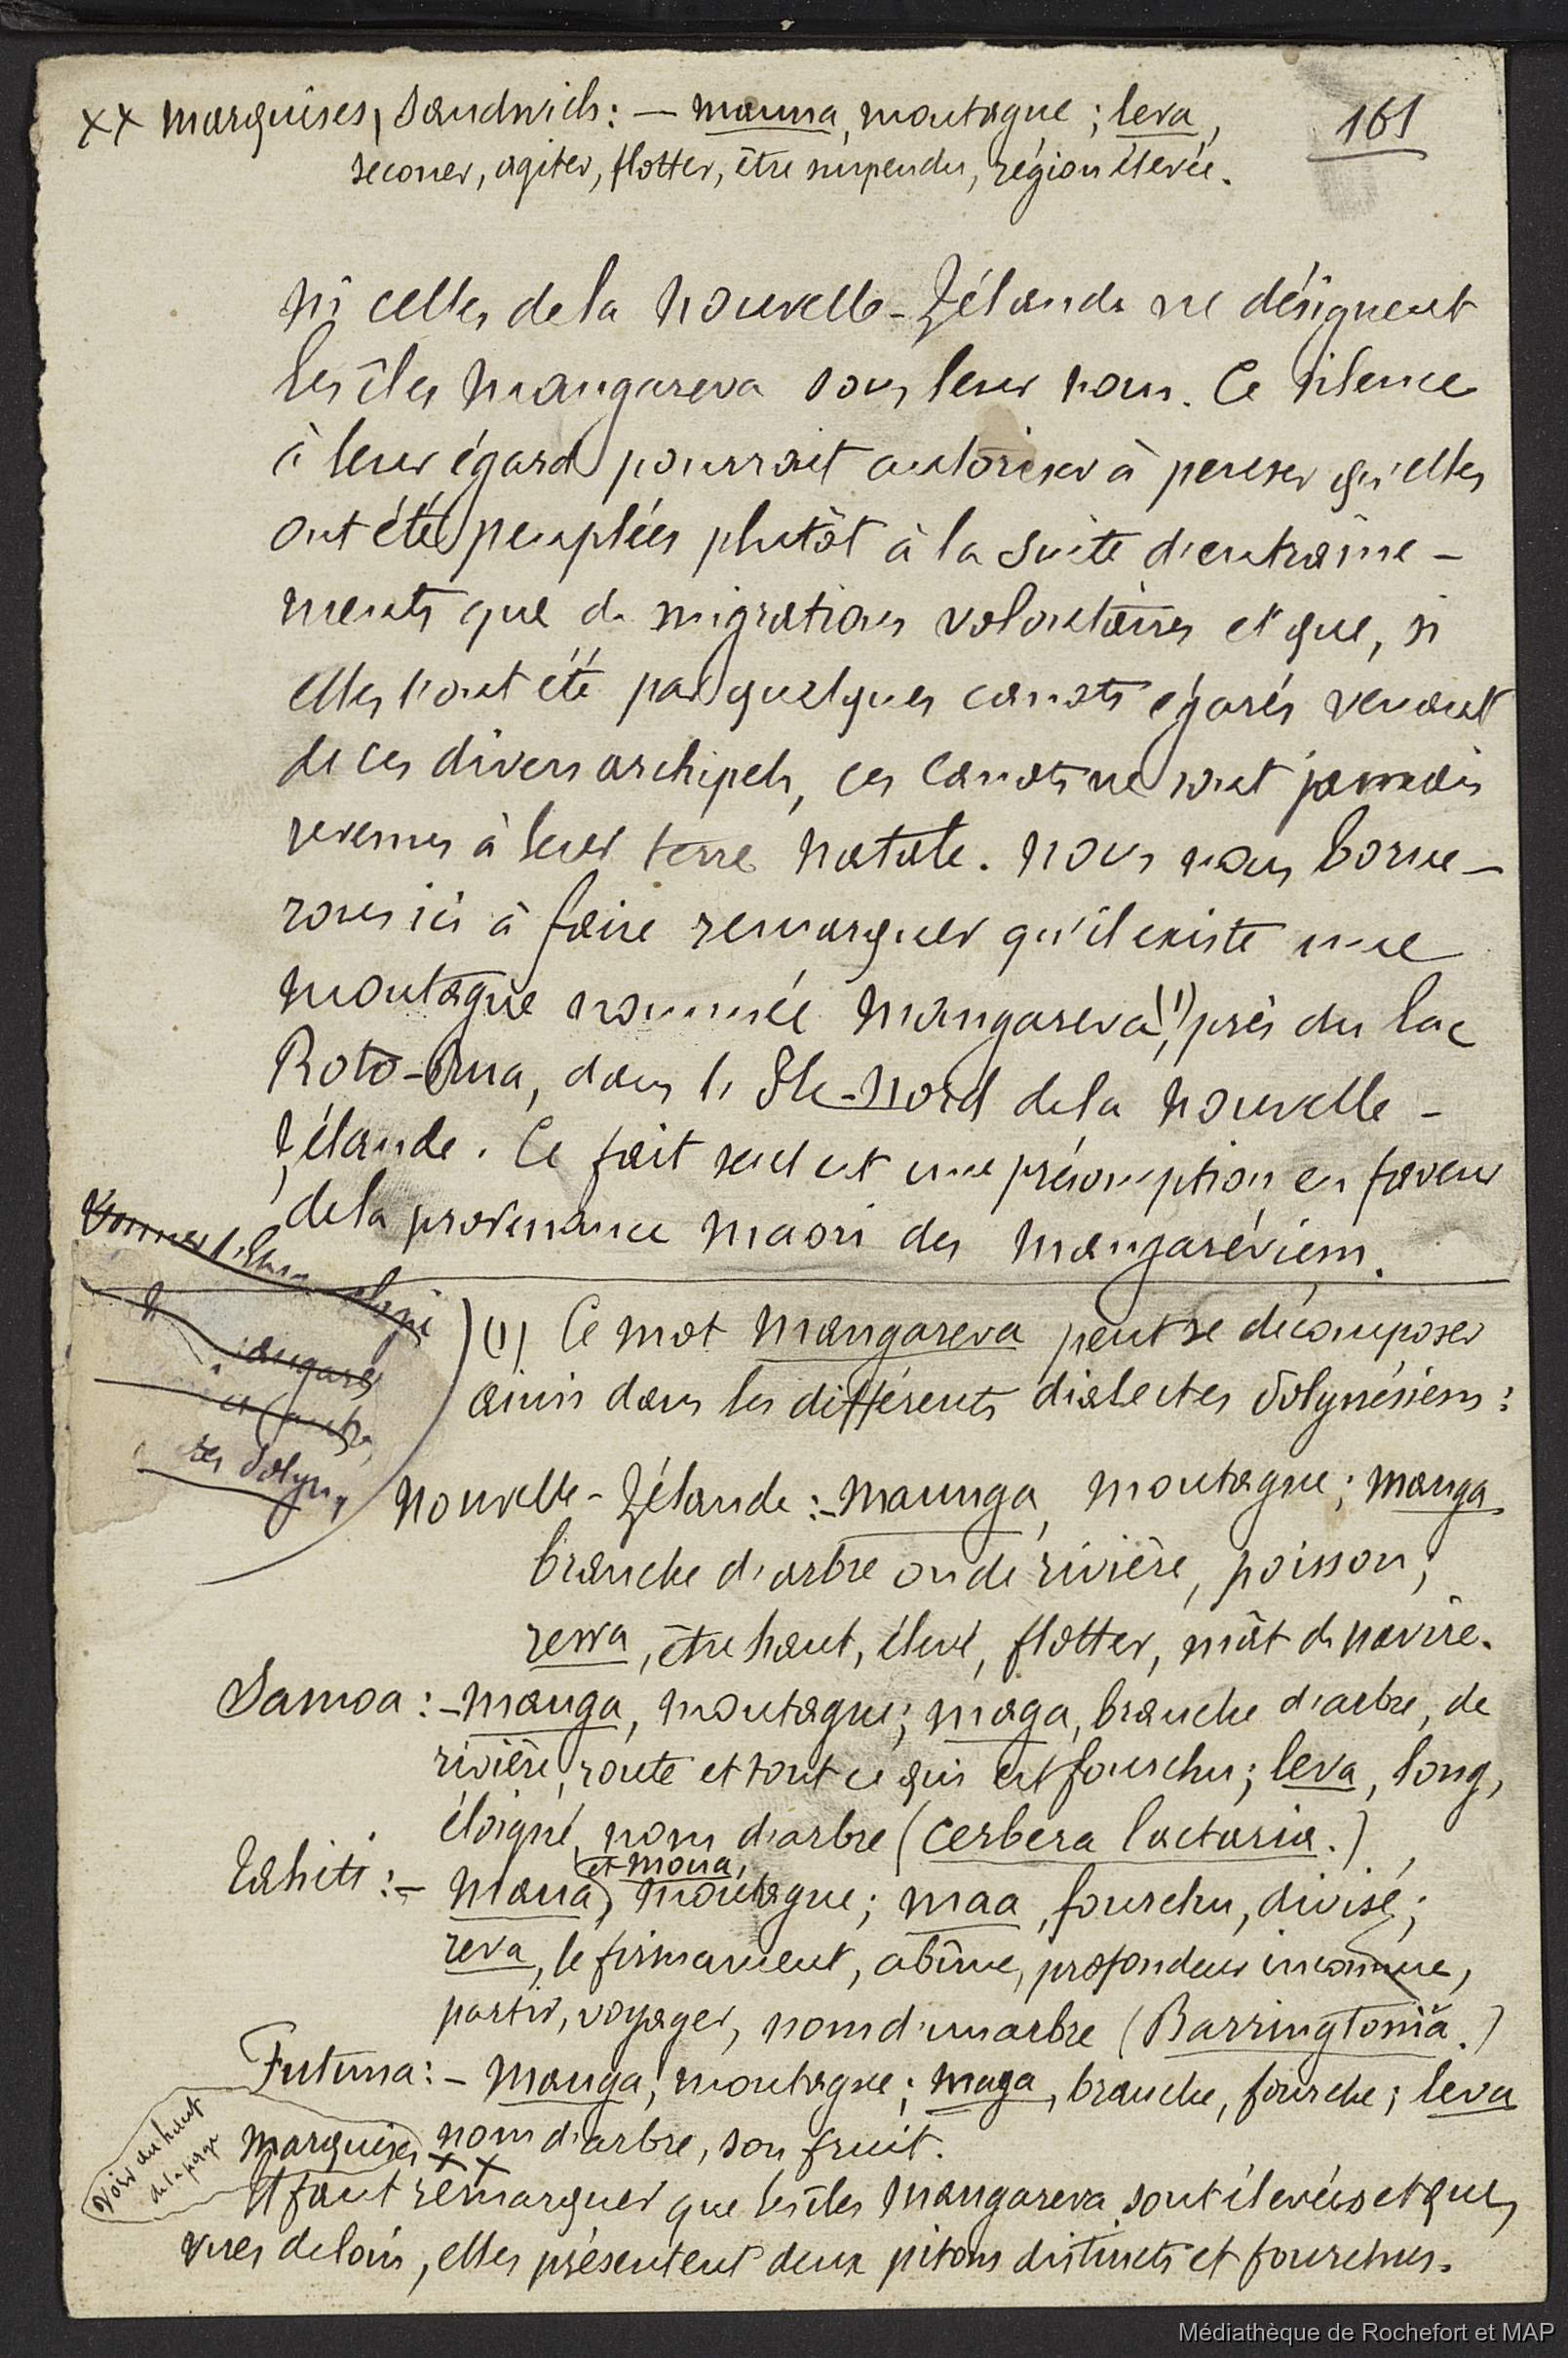 xx Marquises, Sandwich : — mauna, montagne ; leva,
161
secouer, agiter, flotter, être suspendu, région élevée.
ni celles de la Nouvelle-Zélande ne désignent
les îles Mangareva sous leur nom. Ce silence
à leur égard pourrait autoriser à penser qu'elles
ont été peuplées plutôt à la suite d'entraîne-
ments que de migrations volontaires et que, si
elles l'ont été par quelques canots égarés venant
de ces divers archipels, ces canots ne sont jamais
revenus à leur terre natale. Nous nous borne-
rons ici à faire remarquer qu'il existe une
montagne nommée Mangareva (1), près du lac
Roto-Rua, dans l'Île-Nord de la Nouvelle-
Zélande. Ce fait seul est une présomption en faveur
de la provenance Maori des Mangaréviens.
Donner l'
(1) Ce mot Mangareva peut se décomposer
ainsi dans les différents dialectes Polynésiens :
les Polyn.
Nouvelle-Zélande :- maunga, montagne ; manga
branche d'arbre ou de rivière, poisson ;
rewa, être haut, élevé, flotter, mât de navire.
Samoa :- mauga, montagne ; maga, branche d'arbre, de
rivière, route et tout ce qui est fourchu ; leva, long,
éloigné, nom d'arbre (Cerbera lactaria.)
et moua,
Tahiti :- maua, montagne ; maa, fourchu, divisé ;
reva, le firmament, abîme, profondeur inconnue,
partir, voyager, nom d'un arbre (Barringtonia.)
Futuna :- mauga, montagne ; maga, branche, fourche ; leva
nom d'arbre, son fruit.
Marquises xx
Voir au haut
de la page
Il faut remarquer que les îles Mangareva sont élevées et que,
vues de loin, elles présentent deux pitons distincts et fourchus.
Médiathèque de Rochefort et MAP